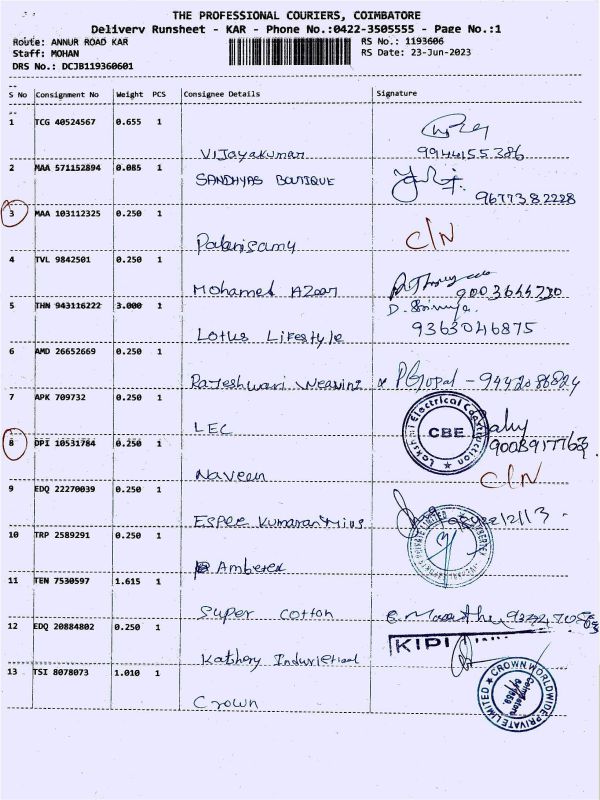 THE PROFESSIONAL COURIERS, COIMBATORE
Delivery Runsheet - KAR - Phone No.:0422-3505555 - Page No.:1
Route: ANNUR ROAD KAR
RS No.: 1193606
Staff: MOHAN
RS Date: 23-Jun-2023
DRS No.: DCJB119360601
S No Consignment No Weight PCS Consignee Details Signature
1 TCG 40524567 0.655 1
Vijayakumar 9944155386
2 MAA 571152894 0.085 1 SANDHYAS BOUTIQUE
9677382228
3 MAA 103112325 0.250 1
Palanisamy C/N
4 TVL 9842501 0.250 1
Mohamed Azaar 9003644730
5 THN 943116222 3.000 1 D.
Lotus Lifestyle 9363046875
6 AMD 26652669 0.250 1
Rajeshwari Weaving P Gopal - 9442088824
7 APK 709732 0.250 1
LEC
Lakshmi Electrical Construction
CBE
8 DPI 10531784 0.250 1
Naveen C/N
9 EDQ 22270039 0.250 1
ESPEE Kumaran Mills
10 TRP 2589291 0.250 1
Amberex
11 TEN 7530597 1.615 1
Super Cotton
12 EDQ 20884802 0.250 1
KIPI
Kathery Industrial
13 TSI 8078073 1.010 1
Crown
CROWN WORLDWIDE PRIVATE LIMITED